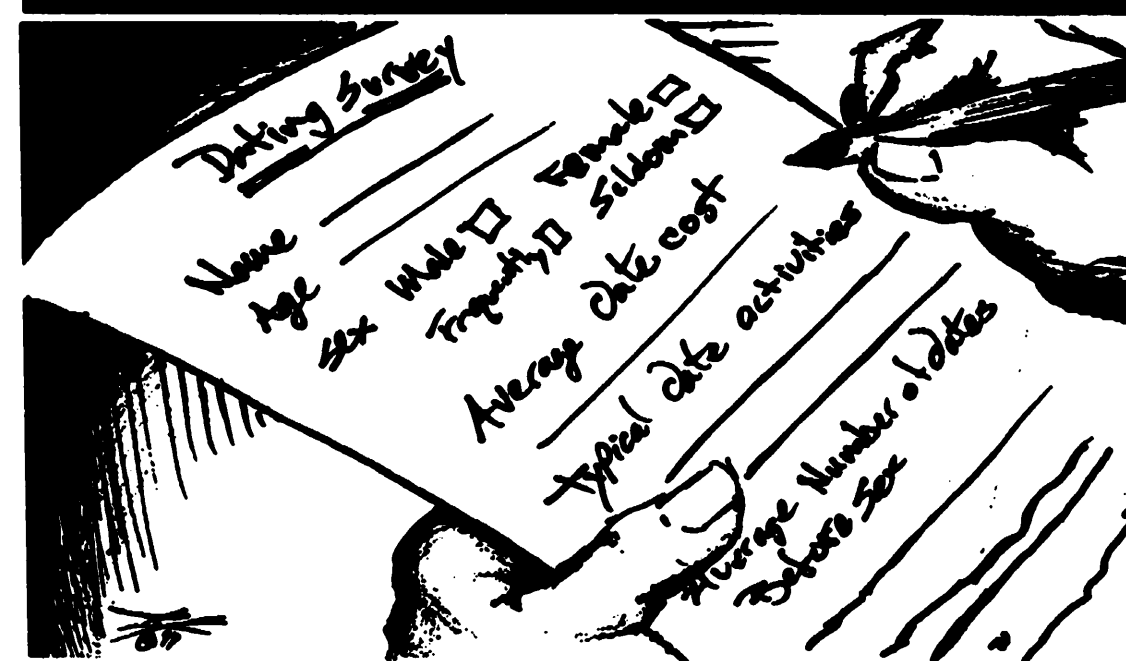 Dating Survey
Name
Age
Sex Male Female
Frequently Seldom
Average Date cost
Typical date activities
Average Number of Dates
Before Sex